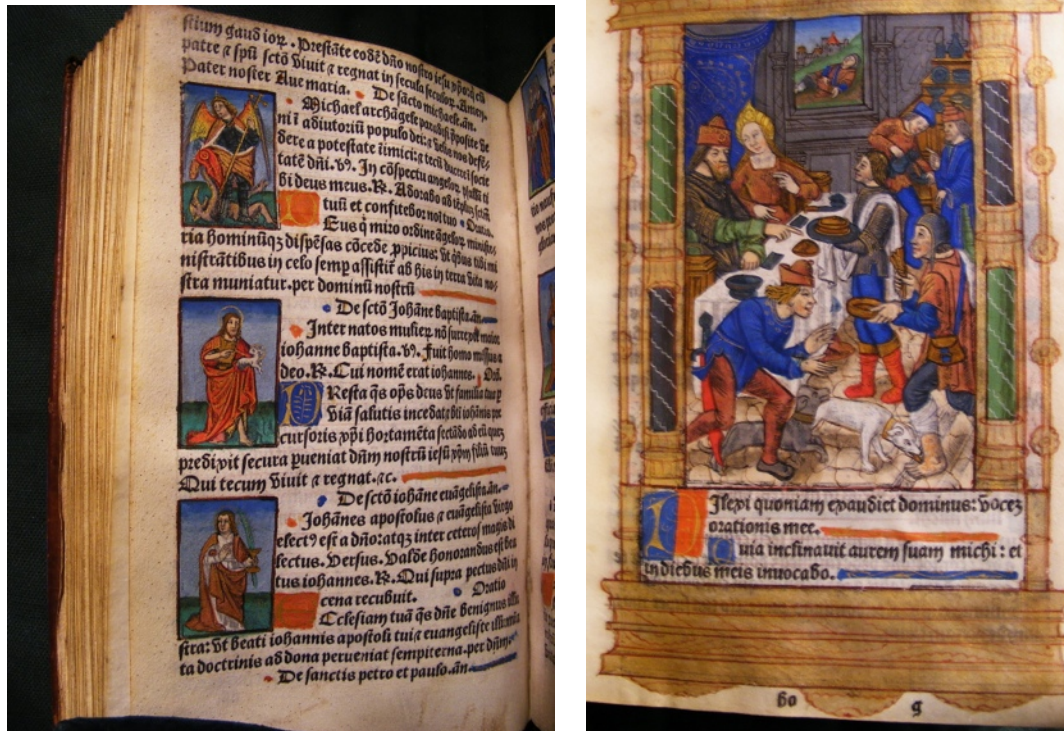 ſtium gaudioꝝ. Preſtãte eodẽ dño noſtro ieſu xp̃o: q̃ cũ
patre ⁊ ſpũ ſctõ viuit ⁊ regnat in ſecula ſeculoꝝ. Amen.
Pater noſter Aue maria. De ſãcto michaele. añ.
Michael archãgele paradiſi p̃poſite ve
ni ĩ adiutoriũ populo dei: ⁊ velis nos defẽ-
dere a poteſtate ĩimici: ⁊ tecũ ducere ĩ ſocie
tatẽ dñi. v̉. In cõſpectu angeloꝝ pſallã ti
bi deus meus. R. Adorabo ad tẽplum ſctm̃
tuũ et confitebor noĩ tuo. Oratio.
DEus q̃ miro ordine ãgeloꝝ miniſte-
ria hominũq̃ diſpẽſas cõcede ꝓpicius: vt q̃bus tibi mi
niſtrãtibus in celo ſemꝑ aſſiſtiť ab his in terra vita no-
ſtra muniatur. per dominũ noſtrũ
De ſctõ iohãne baptiſta. añ.
Inter natos mulieꝝ nõ ſurrexit maior
iohanne baptiſta. v̉. fuit homo miſſus a
deo. R. Cui nomẽ erat iohannes. Orõ.
PReſta q̃s op̃s deus vt familia tua ꝑ
viã ſalutis incedat ⁊ bti iohãnis pre
curſoris xp̃i hortamẽta ſectãdo ad eũ quez
predixit ſecura ꝑueniat dñm noſtrũ ieſũ xp̃m filiũ tuuz
Qui tecum viuit ⁊ regnat. ⁊c.
De ſctõ iohãne euãgeliſta. añ.
Johãnes apoſtolus ⁊ euãgeliſta virgo
elect9 eſt a dño: atqꝫ inter ceteros magis di
lectus. Verſus. Valde honorandus eſt bea
tus iohannes. R. Qui ſupra pectus dñi in
cena recubuit. Oratio
ECcleſiam tuã q̃s dñe benignus illu
ſtra: vt beati iohannis apoſtoli tui ⁊ euangeliſte illumina
ta doctrinis ad dona perueniat ſempiterna. per dñm
De ſanctis petro et paulo. añ.
DIlexi quoniam exaudiet dominus: vocez
orationis mee.
Quia inclinauit aurem ſuam michi: et
in diebus meis inuocabo.
bo g